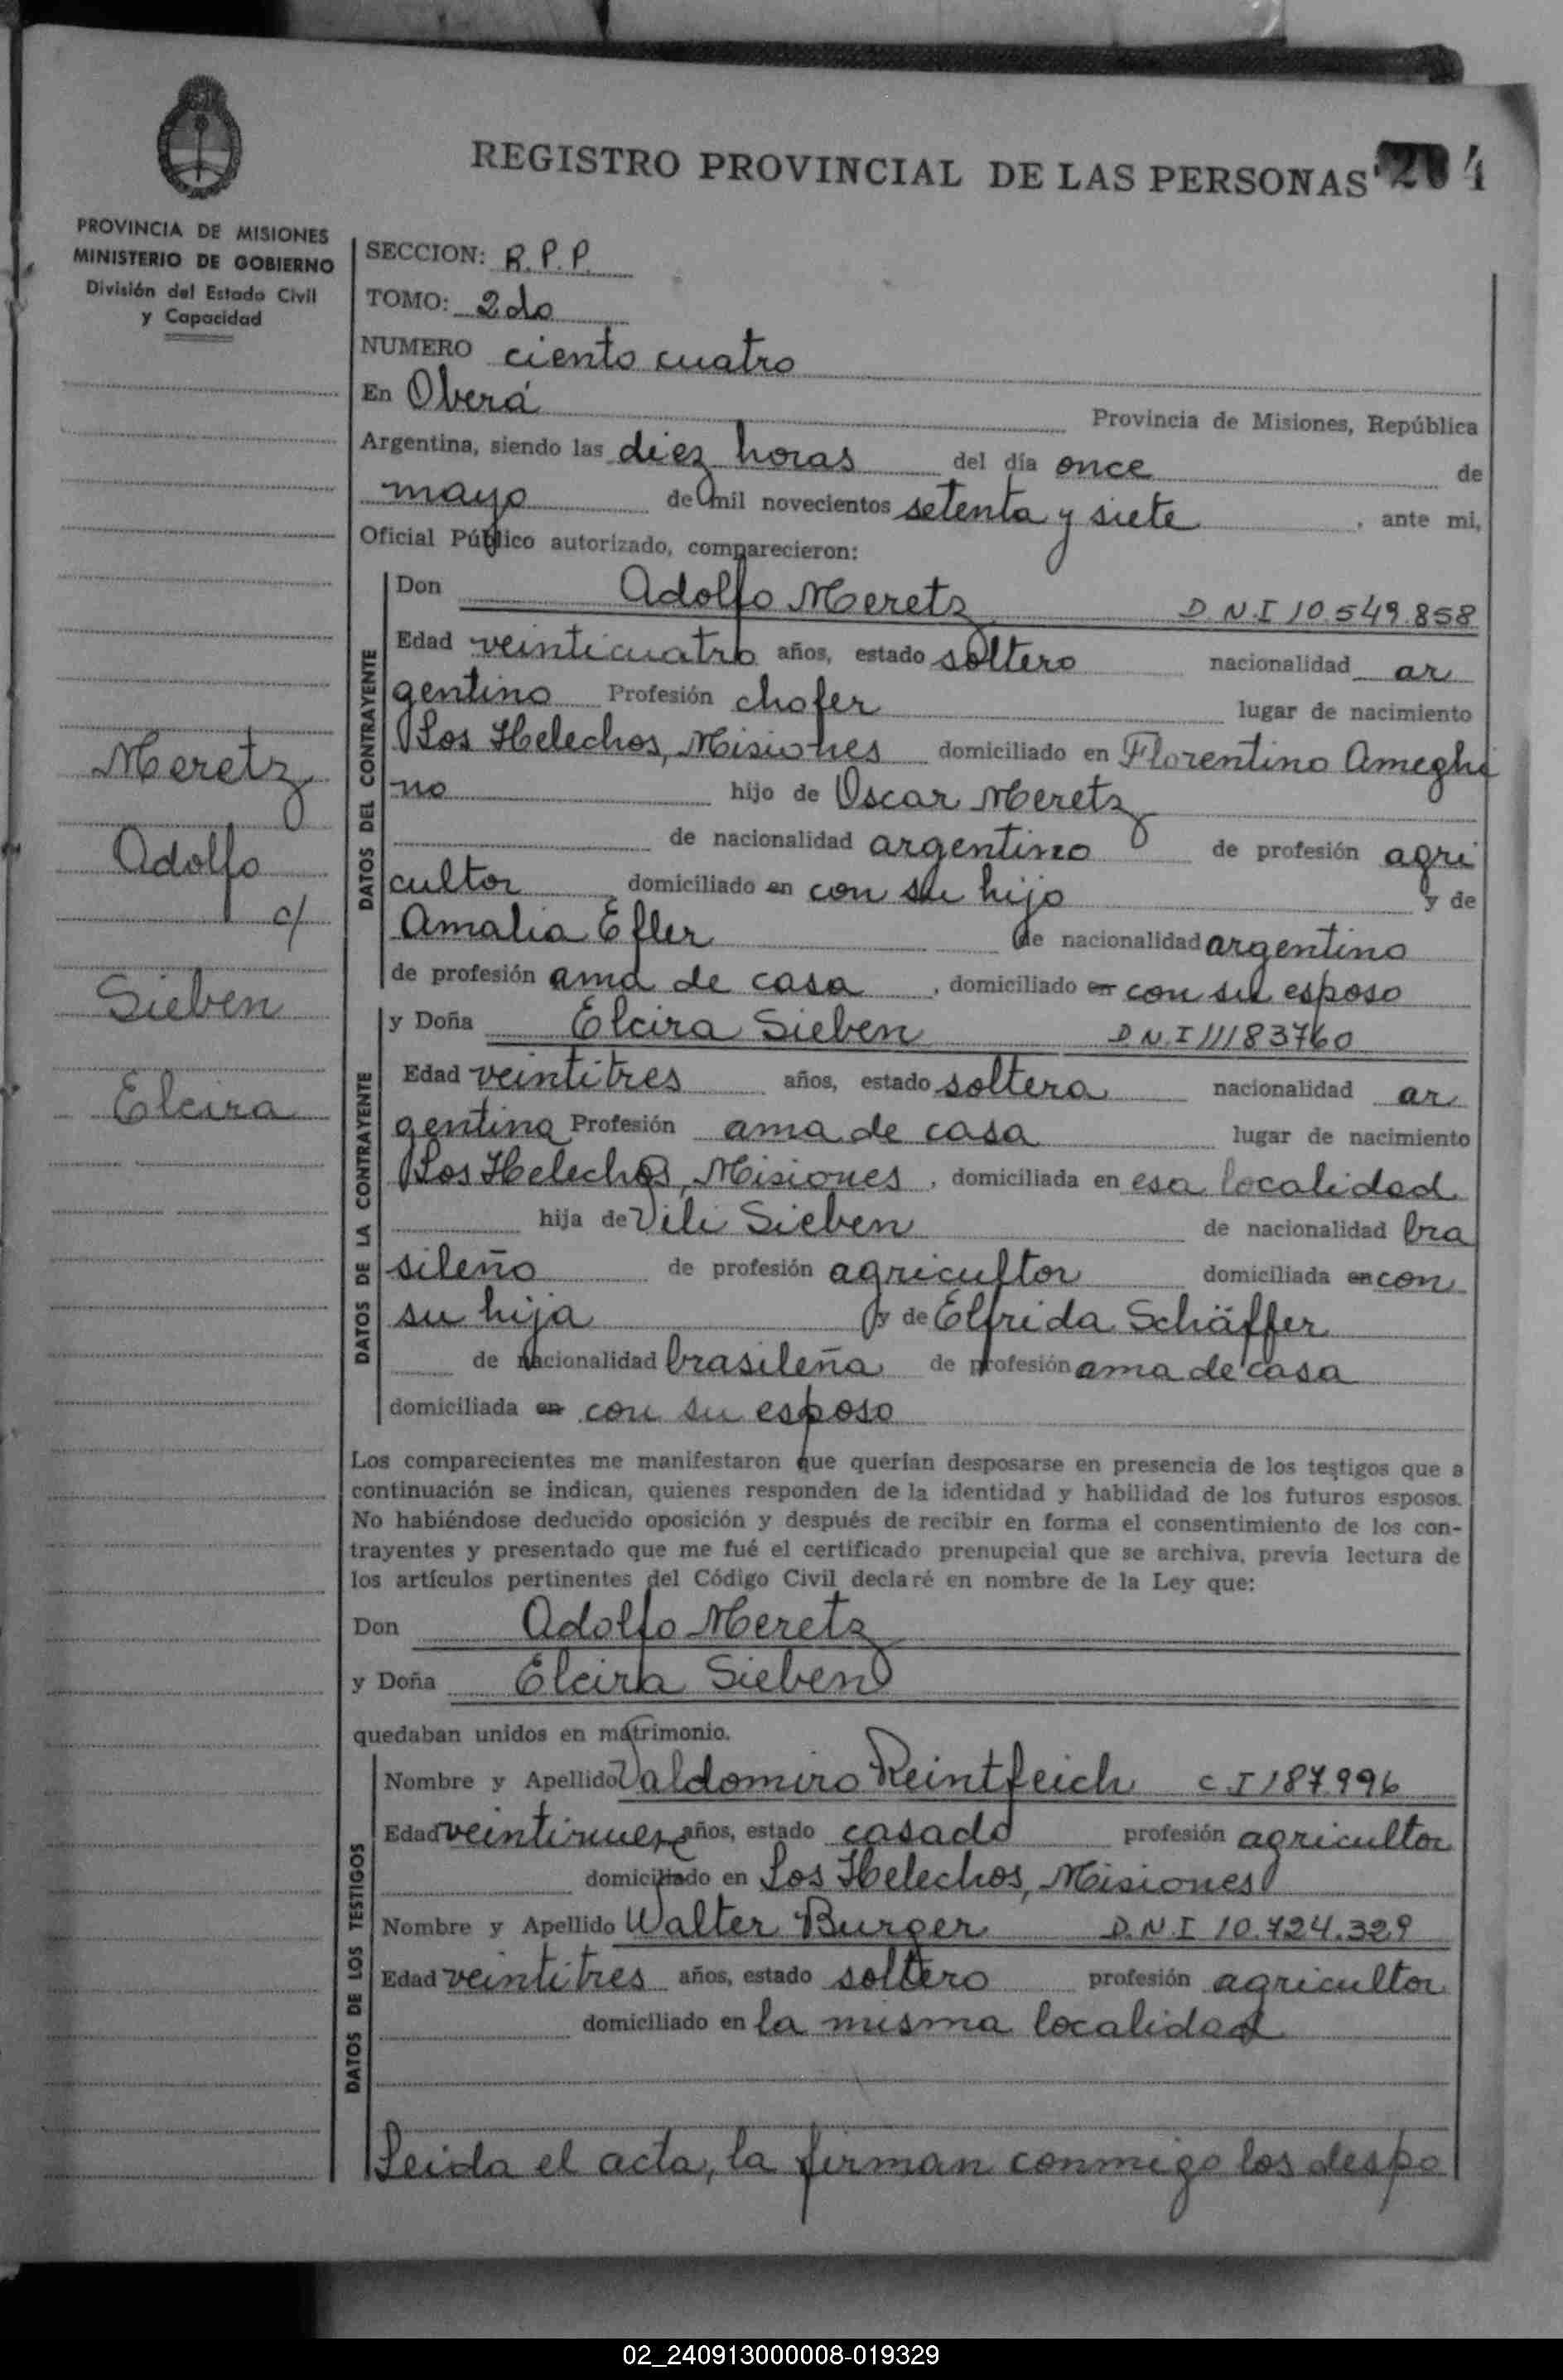 REGISTRO PROVINCIAL DE LAS PERSONAS 204
PROVINCIA DE MISIONES
MINISTERIO DE GOBIERNO
División del Estado Civil
y Capacidad
Meretz
Adolfo
c/
Sieben
Elcira
SECCION: R.P.P.
TOMO: 2do
NUMERO ciento cuatro
En Oberá Provincia de Misiones, República
Argentina, siendo las diez horas del día once de
mayo de mil novecientos setenta y siete, ante mi,
Oficial Público autorizado, comparecieron:
DATOS DEL CONTRAYENTE
Don Adolfo Meretz D.N.I 10.549.858
Edad veinticuatro años, estado soltero nacionalidad ar
gentino Profesión chofer lugar de nacimiento
Los Helechos, Misiones domiciliado en Florentino Ameghi
no hijo de Oscar Meretz
de nacionalidad argentino de profesión agri
cultor domiciliado en con su hijo y de
Amalia Efler de nacionalidad argentino
de profesión ama de casa, domiciliado en con su esposo
DATOS DE LA CONTRAYENTE
y Doña Elcira Sieben D.N.I 11183760
Edad veintitres años, estado soltera nacionalidad ar
gentina Profesión ama de casa lugar de nacimiento
Los Helechos, Misiones, domiciliada en esa localidad
hija de Vili Sieben de nacionalidad bra
sileño de profesión agricultor domiciliada en con
su hija y de Elfrida Schäffer
de nacionalidad brasileña de profesión ama de casa
domiciliada en con su esposo
Los comparecientes me manifestaron que querían desposarse en presencia de los testigos que a
continuación se indican, quienes responden de la identidad y habilidad de los futuros esposos.
No habiéndose deducido oposición y después de recibir en forma el consentimiento de los con-
trayentes y presentado que me fué el certificado prenupcial que se archiva, previa lectura de
los artículos pertinentes del Código Civil declaré en nombre de la Ley que:
Don Adolfo Meretz
y Doña Elcira Sieben
quedaban unidos en matrimonio.
DATOS DE LOS TESTIGOS
Nombre y Apellido Valdomiro Reintfeich C I 187.996
Edad veintinueve años, estado casado profesión agricultor
domiciliado en Los Helechos, Misiones
Nombre y Apellido Walter Burger D.N.I 10.724.329
Edad veintitres años, estado soltero profesión agricultor
domiciliado en la misma localidad
Leida el acta, la firman conmigo los despo
02_240913000008-019329